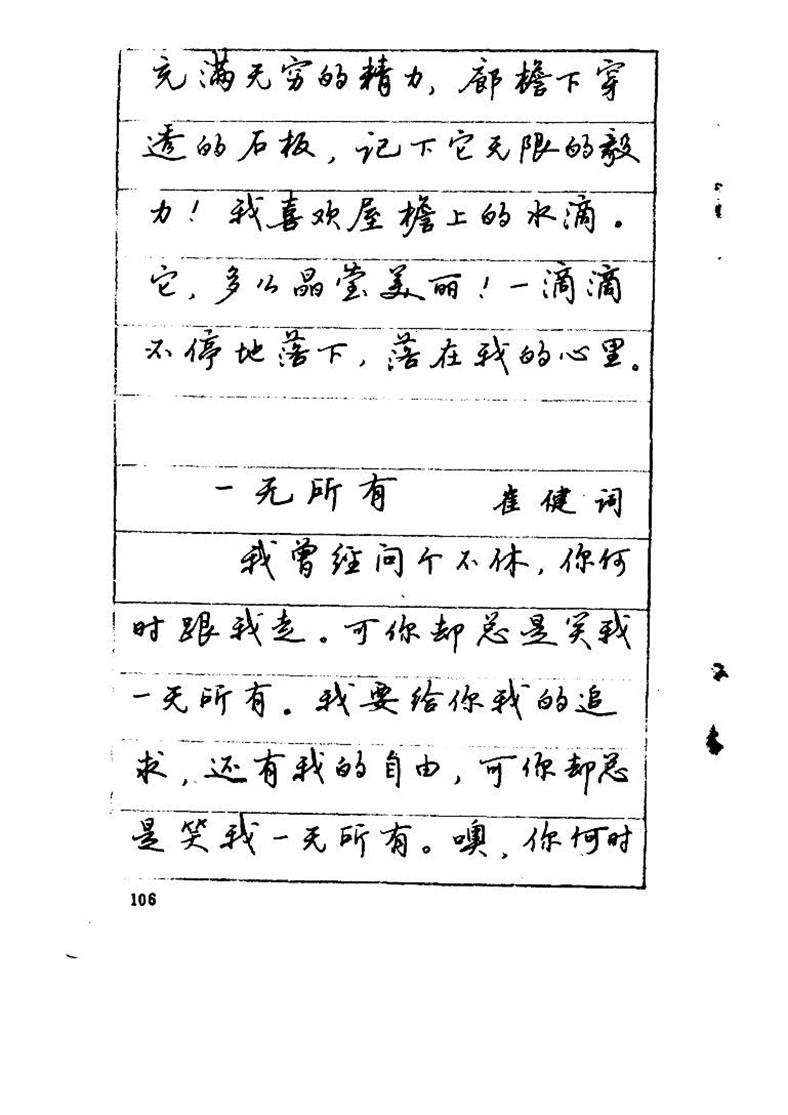 充满无穷的精力，廊檐下穿
透的石板，记下它无限的毅
力！我喜欢屋檐上的水滴。
它，多么晶莹美丽！一滴滴
不停地落下，落在我的心里。
一无所有 崔健词
我曾经问个不休，你何
时跟我走。可你却总是笑我
一无所有。我要给你我的追
求，还有我的自由，可你却总
是笑我一无所有。噢，你何时
106